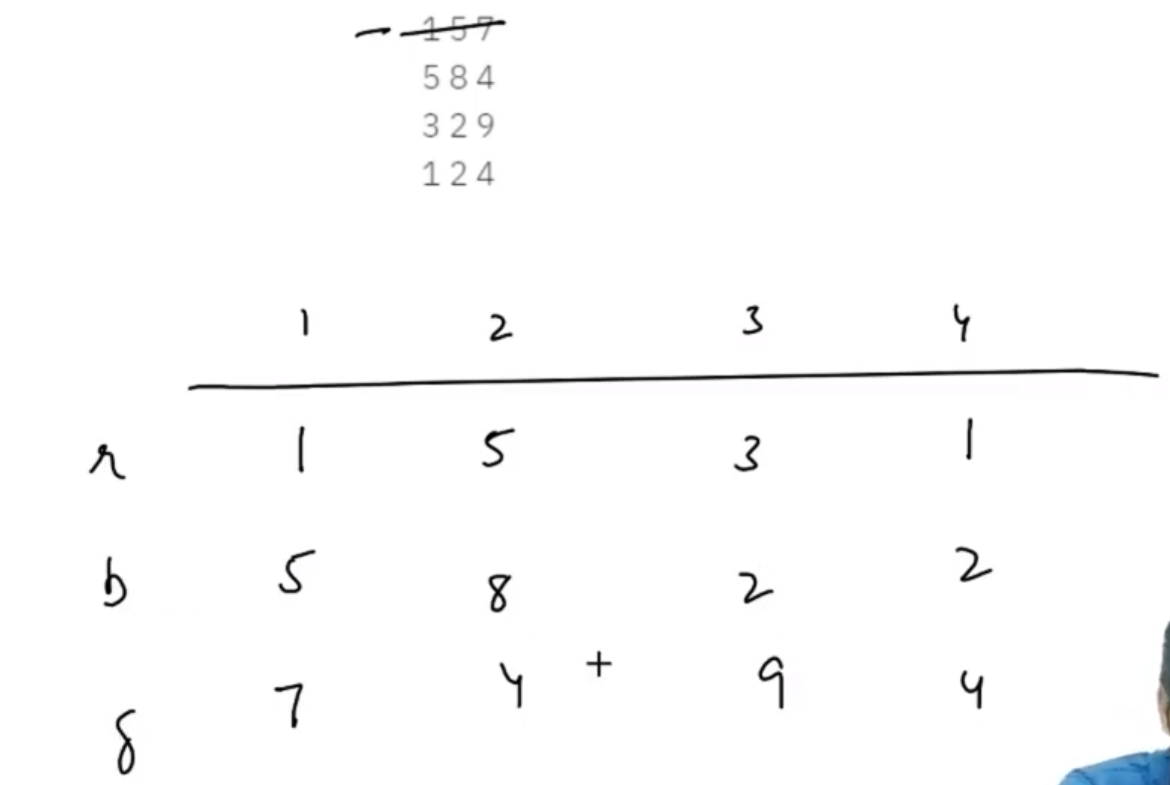 157
584
329
124
1 2 3 4
r 1 5 3 1
b 5 8 2 2
g 7 4 + 9 4